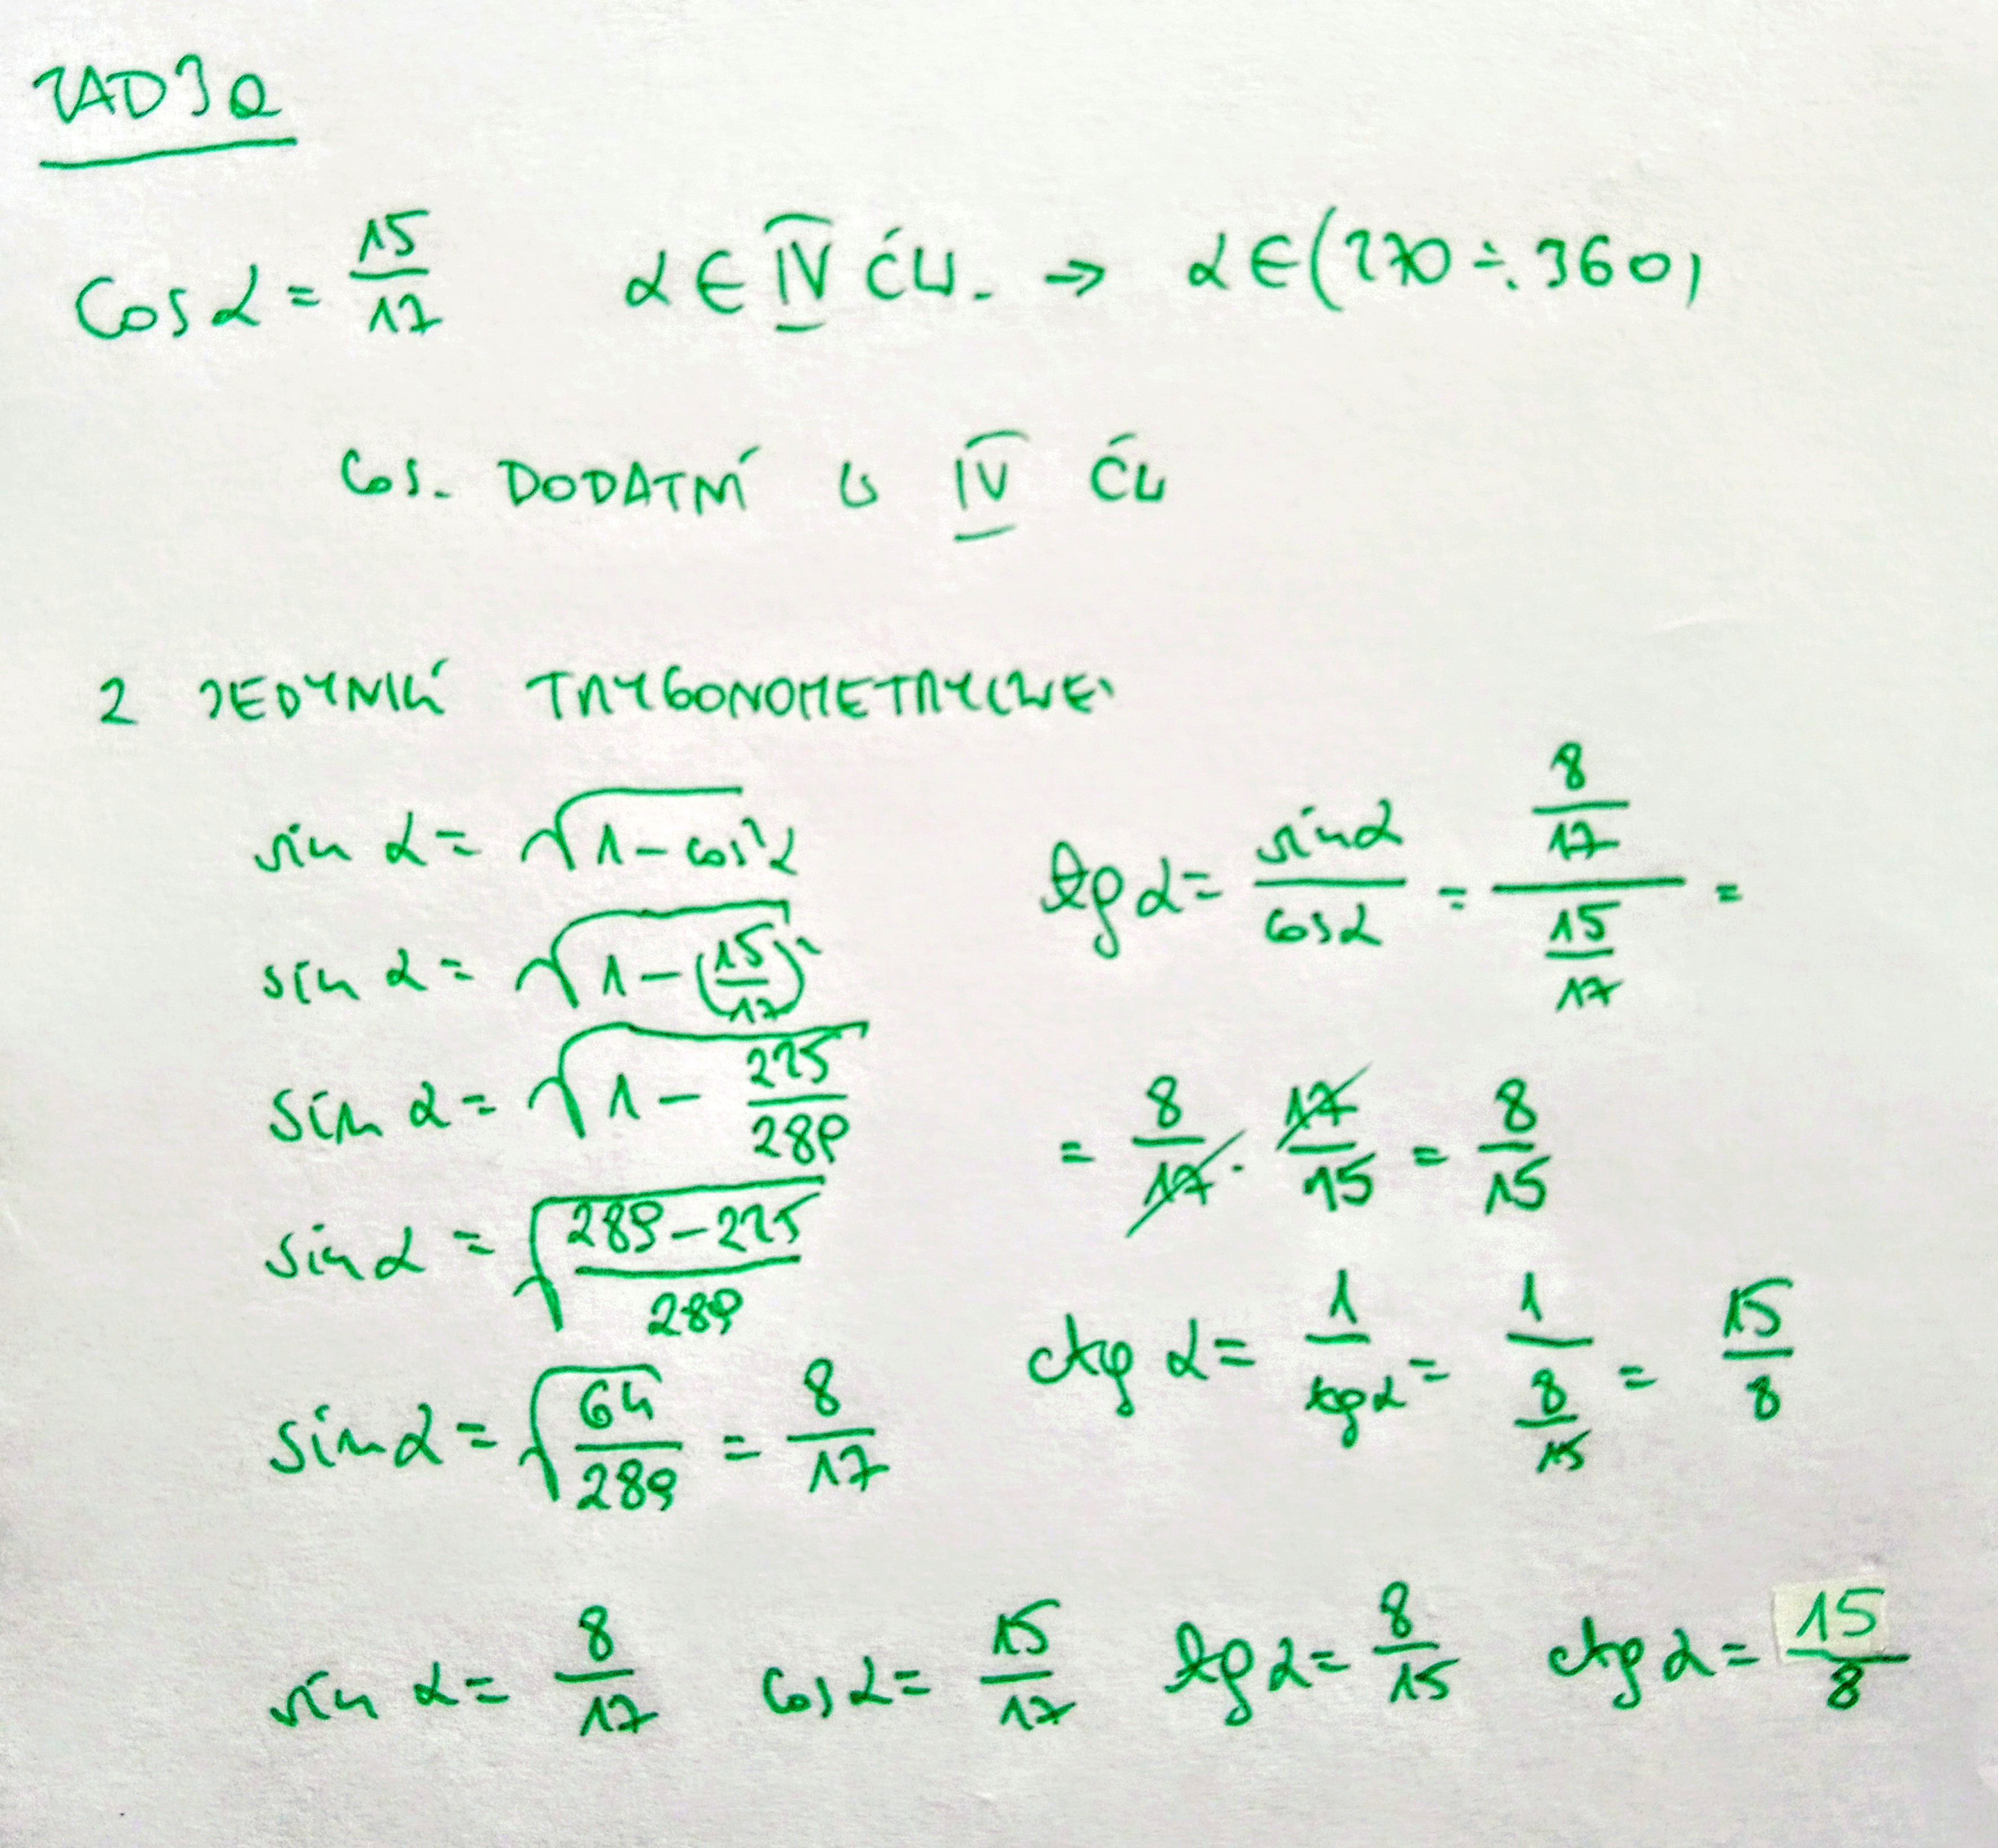 ZAD 3a
cos α = 15/17   α ∈ IV ĆW. → α ∈ (270 ÷ 360)
cos. DODATNÍ W IV ĆW
Z JEDYNKÍ TRYGONOMETRYCZNEJ
sin α = √(1 - cos²α)
sin α = √(1 - (15/17)²)
sin α = √(1 - 225/289)
sin α = √((289 - 225)/289)
sin α = √(64/289) = 8/17
tg α = sin α/cos α = (8/17)/(15/17) =
= 8/17 · 17/15 = 8/15
ctg α = 1/tg α = 1/(8/15) = 15/8
sin α = 8/17   cos α = 15/17   tg α = 8/15   ctg α = 15/8